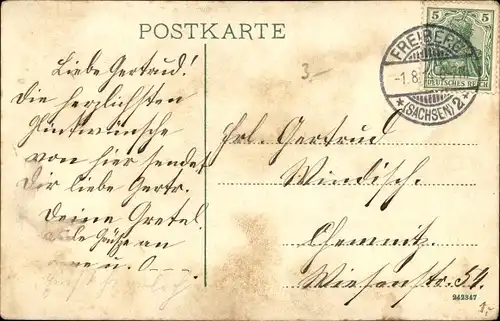 POSTKARTE
5 5
DEUTSCHES REICH
FREIBERG
-1.8.
*(SACHSEN) 2*
3.-
Liebe Gertrud!
Die herzlichsten
Glückwünsche
von hier sendet
Dir liebe Gertr.
Deine Gretel.
Viele Grüße an
u. O
Frl. Gertrud
Windisch.
Chemnitz.
Wiesenstr. 54.
242347